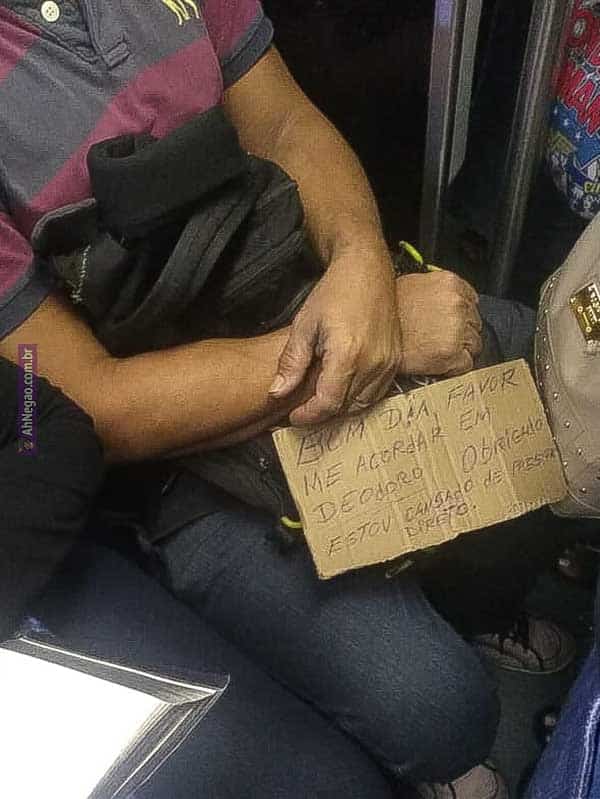 BOM DIA, FAVOR
ME ACORDAR EM
DEODORO OBRIGADO
ESTOU CANSADO DE PASSAR
DIRETO.
AhNegao.com.br